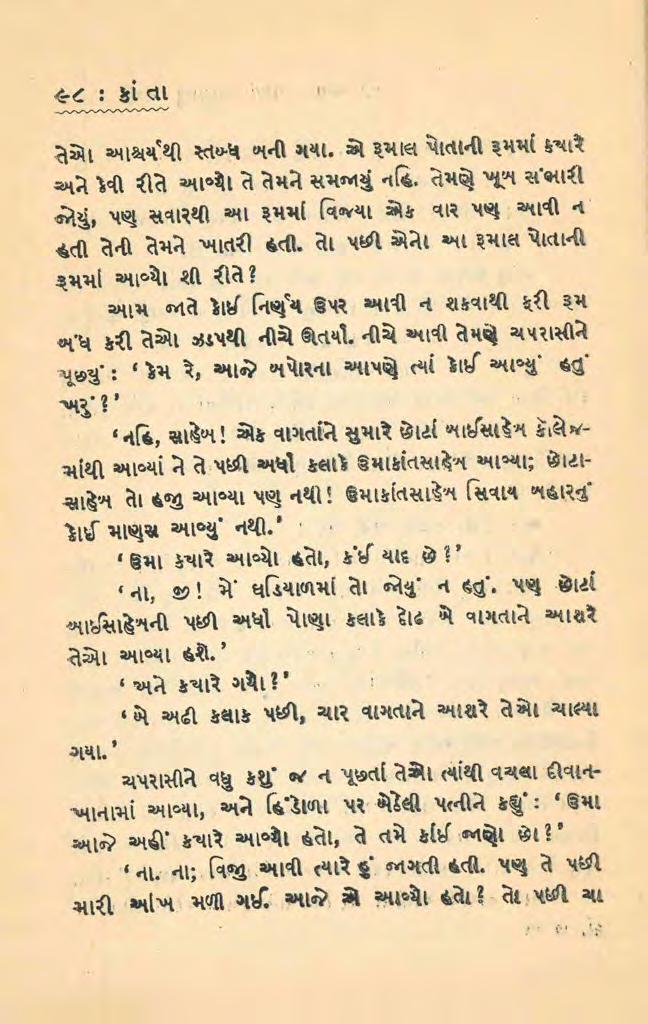 ૯૮ : કાંતા
તેઓ આશ્ચર્યથી સ્તબ્ધ બની ગયા. એ રૂમાલ પોતાની રૂમમાં કયારે
અને કેવી રીતે આવ્યો તે તેમને સમજાયું નહિ. તેમણે ખૂબ સંભારી
જોયું, પણ સવારથી આ રૂમમાં વિજયા એક વાર પણ આવી ન
હતી તેની તેમને ખાતરી હતી. તો પછી એનો આ રૂમાલ પોતાની
રૂમમાં આવ્યો શી રીતે?
આમ જાતે કોઈ નિર્ણય ઉપર આવી ન શકવાથી ફરી રૂમ
બંધ કરી તેઓ ઝડપથી નીચે ઊતર્યા. નીચે આવી તેમણે ચપરાસીને
પૂછયું : ‘કેમ રે, આજે બપોરના આપણે ત્યાં કોઈ આવ્યું હતું
ખરું?’
‘નહિ, સાહેબ! એક વાગતાંને સુમારે છોટાં બાઈસાહેબ કૉલેજ-
માંથી આવ્યાં ને તે પછી અર્ધા કલાકે ઉમાકાંતસાહેબ આવ્યા; છોટા-
સાહેબ તો હજુ આવ્યા પણ નથી! ઉમાકાંતસાહેબ સિવાય બહારનું
કોઈ માણસ આવ્યું નથી.’
‘ઉમા કયારે આવ્યો હતો, કંઈ યાદ છે?’
‘ના, જી! મેં ઘડિયાળમાં તો જોયું ન હતું. પણ છોટાં
બાઈસાહેબની પછી અર્ધા પોણા કલાકે દોઢ બે વાગતાને આશરે
તેઓ આવ્યા હશે.’
‘અને કયારે ગયો?’
‘બે અઢી કલાક પછી, ચાર વાગતાને આશરે તેઓ ચાલ્યા
ગયા.’
ચપરાસીને વધુ કશું જ ન પૂછતાં તેઓ ત્યાંથી વચલા દીવાન-
ખાનામાં આવ્યા, અને હિંડોળા પર બેઠેલી પત્નીને કહ્યું : ‘ઉમા
આજે અહીં કયારે આવ્યો હતો, તે તમે કાંઈ જાણો છો?’
‘ના. ના; વિજુ આવી ત્યારે હું જાગતી હતી. પણ તે પછી
મારી આંખ મળી ગઈ. આજે એ આવ્યો હતો? તો પછી ચા